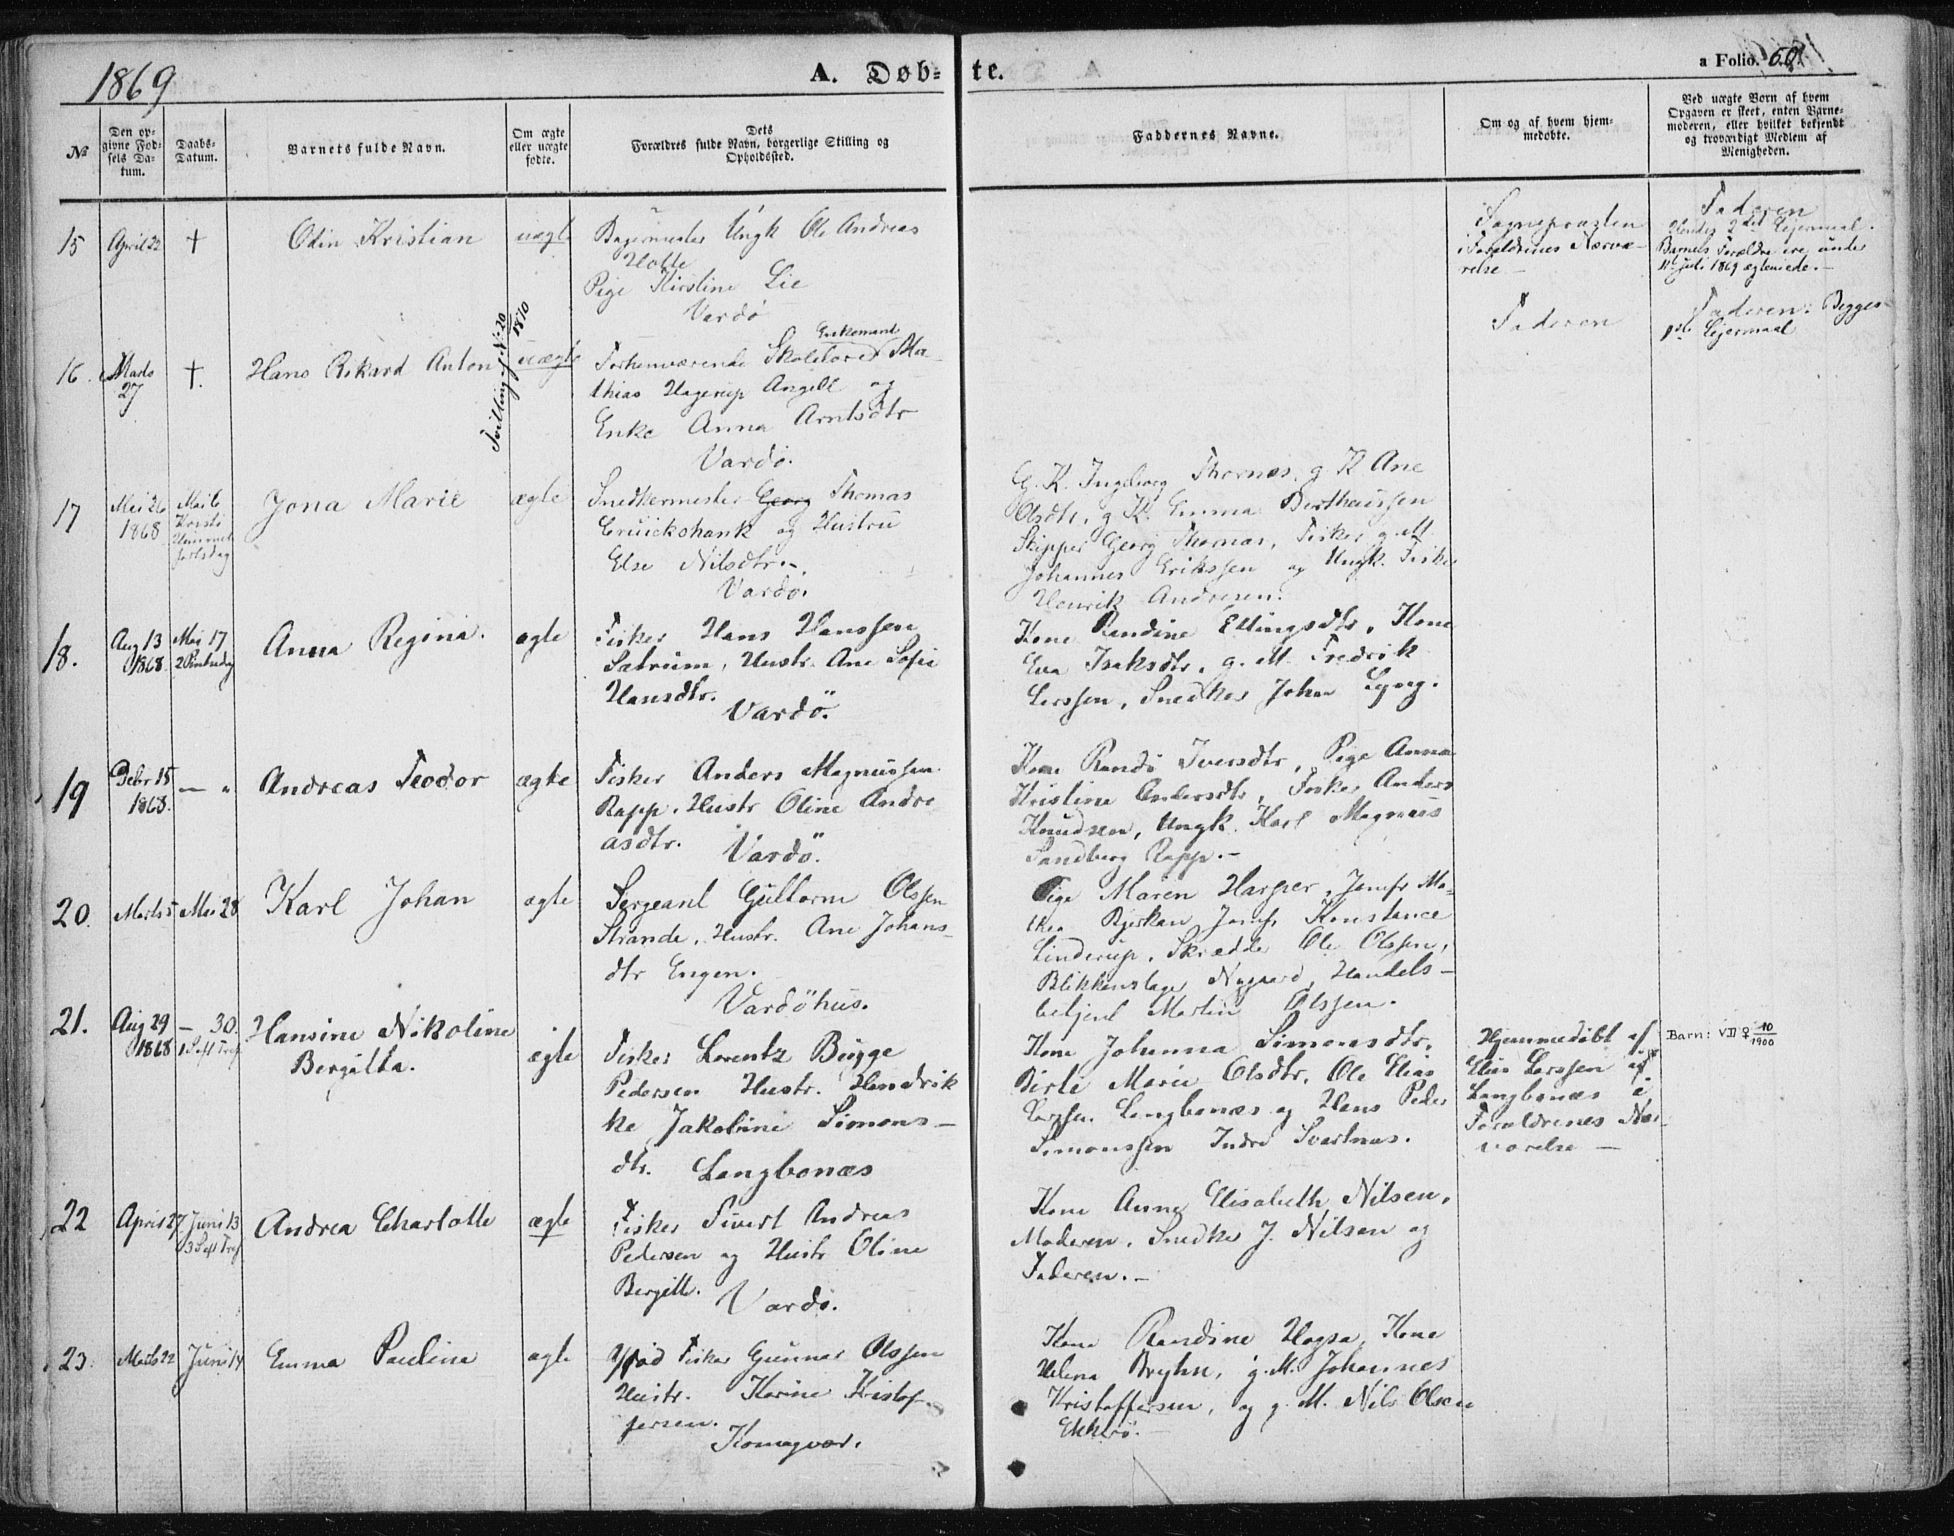 1869
A. Døb-
te.
a Folio.
№
Den op-
givne Fød-
sels Da-
tum.
Daabs-
Datum.
Barnets fulde Navn.
Om ægte
eller uægte
fødte.
Dets
Forældres fulde Navn, borgerlige Stilling og
Opholdssted.
Faddernes Navne.
Om og af hvem hjem-
medøbte.
Ved uægte Børn af hvem
Opgaven er skeet, enten Barne-
moderen, eller hvilket bekjendt
og troværdigt Medlem af
Menigheden.
15
April 22
†
Odin Kristian
uægte
Bagermester Ungk Ole Andreas
Holte
Pige Kirstine Lie
Vardø
Sognepræsten
i Forældrenes Nærvæ-
relse -
Faderen
2det Lejermaal.
Barnets Forældre ere under
11te Juli 1869 ægteviede.-
16.
Marts
27
†.
Hans Rikard Anton
Tvilling of No 20
1870
uægte
Forhenværende Skolelærer Enkemand Ma-
thias Hagerup Angell og
Enke Anna Arntsdtr
Vardø.
Faderen
Faderen: Begges
1ste Lejermaal
17
Mai 26
1868
Mai 6
Kristi
Himmel
fartsdag
Jona Marie
ægte
Snedkermester Georg Thomas
Cruickshank og Hustru
Else Nilsdtr.-
Vardø.
G. K. Ingeborg Thornæs, g K Ane
Olsdtr, g K. Emma Berthaussen
Skipper Georg Thomas, Fisker g M
Johannes Erikssen og Ungk. Fisker
Henrik Andresen.
18.
Aug 13
1868.
Mai 17
2 Pintsedag
Anna Regina.
ægte
Fisker Hans Hanssen
Satrum, Hustr. Ane Sofie
Hansdtr.
Vardø.
Kone Randine Ellingsdtr, Kone
Eva Isaksdtr, g. M. Fredrik
Larssen, Snedker Johan Lyng.
19
Debr 15
1868.
— "
Andreas Teodor
ægte
Fisker Anders Magnussen
Rapp. Hustr Oline Andre-
asdtr.
Vardø.
Kone Randø Iversdtr, Pige Anna
Kristine Andersdtr, Fisker Anders
Knudsen, Ungk. Karl Magnus
Sandberg Rapp.-
20.
Marts 5
Mai 28
Karl Johan
ægte
Sergeant Guttorm Olssen
Strande, Hustr. Ane Johans-
dtr Engen.
Vardøhus.
Pige Maren Harper, Jomfr Ma-
thea Bjerkan Jomfr Konstance
Linderup, Skrædder Ole Olssen,
Blikkenslager Nygaard, Handels-
betjent Martin Olssen.
21.
Aug 29
1868
— 30.
1 Søft Tref
Hansine Nikoline
Bergitta.
ægte
Fisker Lorentz Bugge
Pedersen Hustr. Hendrik
ke Jakobine Simons-
dtr. Langbonæs
Kone Johanna Simonsdtr,
Birte Marie Olsdtr, Ole Elias
Larssen Langbonæs og Hans Peder
Simonssen Indre Svartnæs.
Hjemmedøbt af
Elias Larssen af
Langbonæs i
Forældrenes Nær-
værelse —
Barn: VII ♀ 10/1900
22
April 27
Juni 13
3 Søft Tref
Andrea Charlotte
ægte
Fisker Sivert Andreas
Pedersen og Hustr Oline
Bergitte.
Vardø.
Kone Anne Elisabeth Nilsen,
Moderen, Snedker J. Nilsen og
Faderen.-
23.
Marts 22
Juni 14
Emma Paulina
ægte
Fisker Gunnar Olssen
Hustr. Karine Kristof-
fersen.
Komagvær.
Kone Randine Hogsa, Kone
Helena Bryhn, g. M. Johannes
Kristoffersen, og g. M. Nils Olsen
Ekkerø.